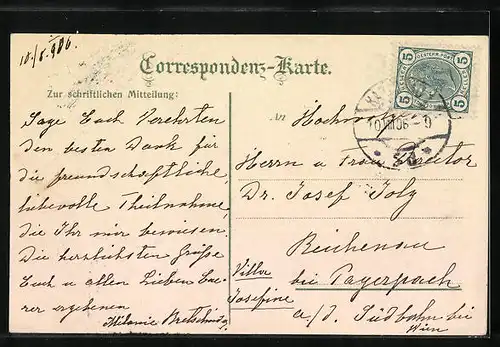 10./8. 906.
Correspondenz-Karte.
Zur schriftlichen Mitteilung:
Sage Euch Verehrten
den besten Dank für
die freundschaftliche,
liebevolle Theilnahme,
die Ihr mir bewiesen.
Die herzlichsten Grüße
Euch u allen Lieben Eu-
rer ergebenen
Melanie
An
Herrn u Frau Director
Dr. Josef Joly
Reichenau
Villa
Josefine
bei Payerbach
a/d. Südbahn bei
Wien
5 5
5 5